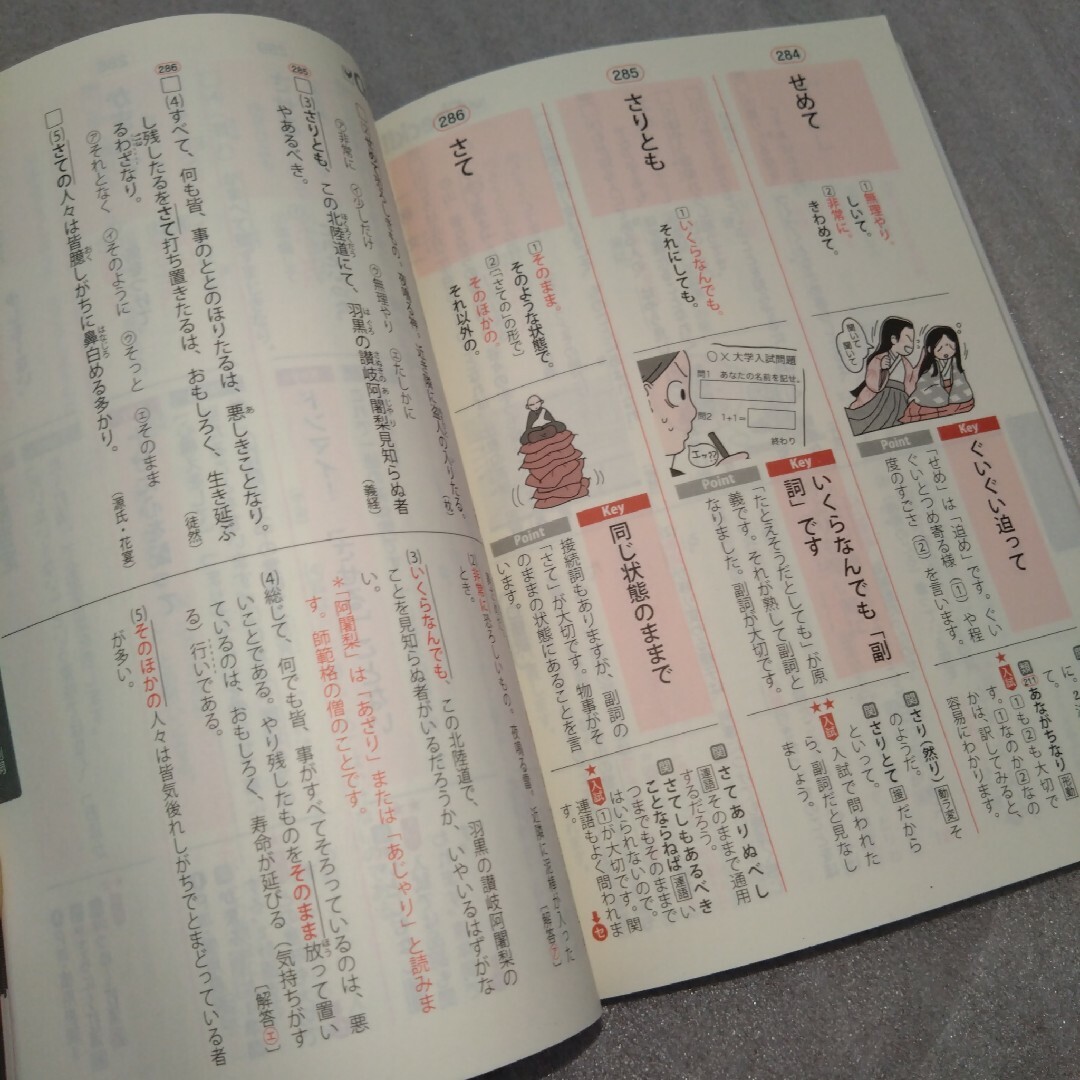 284
せめて
①無理やり。
しいて。
②非常に。
きわめて。
聞いて
聞いて
Key
ぐいぐい迫って
Point
「せめ」は「迫め」です。ぐい
ぐいとつめ寄る様（①）や程
度のすごさ（②）を言います。
211あながちなり 形動
て。
★入試 ①も②も大切で
す。①なのか②なの
かは、訳してみると、
容易にわかります。
285
さりとも
①いくらなんでも。
それにしても。
○×大学入試問題
問1 あなたの名前を記せ。
問2 1+1=
終わり
エッ??
Key
いくらなんでも「副
詞」です
Point
「たとえそうだとしても」が原
義です。それが熟して副詞と
なりました。副詞が大切です。
関 さり（然り）動ラ変 そ
のようだ。
関 さりとて 接 だから
といって。
★★入試 入試で問われた
ら、副詞だと見なし
ましょう。
286
さて
①そのまま。
そのような状態で。
②（「さての」の形で）
そのほかの。
それ以外の。
Key
同じ状態のままで
Point
接続詞もありますが、副詞の
「さて」が大切です。物事がそ
のままの状態にあることを言
います。
関 さてありぬべし
連語 そのままで通用
するだろう。
関 さてしもあるべき
ことならねば 連語 い
つまでもそのままで
はいられないので。
★入試 ①が大切です。関
連語もよく問われま
す。
→セ
㋐非常に ㋑少しだけ ㋒無理やり ㋓たしかに
285
(3)さりとも、この北陸道にて、羽黒の讃岐阿闍梨見知らぬ者
やあるべき。
（義経）
286
(4)すべて、何も皆、事のととのほりたるは、悪しきことなり。
し残したるをさて打ち置きたるは、おもしろく、生き延ぶ
るわざなり。
（徒然）
㋐それとなく ㋑そのように ㋒そっと ㋓そのまま
(5)さての人々は皆臆しがちに鼻白める多かり。
（源氏・花宴）
とき。
(3)いくらなんでも、この北陸道で、羽黒の讃岐阿闍梨の
ことを見知らぬ者がいるだろうか、いやいるはずがな
い。
＊「阿闍梨」は「あざり」または「あじゃり」と読みま
す。師範格の僧のことです。
(4)総じて、何でも皆、事がすべてそろっているのは、悪
いことである。やり残したものをそのまま放って置い
ているのは、おもしろく、寿命が延びる（気持ちがす
る）行いである。
〔解答㋓〕
(5)そのほかの人々は皆気後れしがちでとまどっている者
が多い。